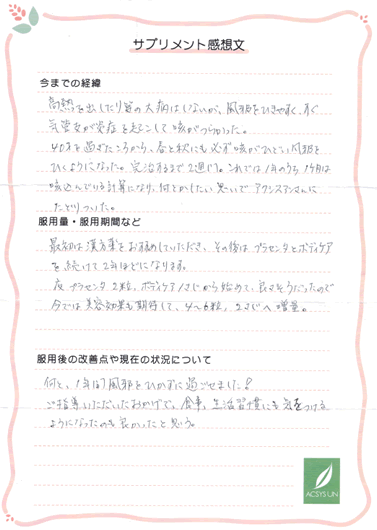 サプリメント感想文
今までの経緯
高熱を出したり等の大病はしないが、風邪をひきやすく、すぐ
気管支が炎症を起こして咳がつらかった。
40才を過ぎたころから、春と秋にも必ず咳がひどい風邪を
ひくようになった。完治するまで2週間。これでは1年のうち1ヶ月は
咳込んでいる計算になり、何とかしたい思いでアクシスアンさんに
たどりついた。
服用量・服用期間など
最初は漢方薬をお薦めしていただき、その後はプラセンタとボディケア
を続けて2年ほどになります。
プラセンタ2粒、ボディケア1さじから始めて、良さそうだったので
今では美容効果も期待して、4〜6粒、2さじへ増量。
服用後の改善点や現在の状況について
何と、1年間風邪をひかずに過ごせました!
ご指導いただいたおかげで、食事、生活習慣にも気をつける
ようになったのも良かったと思う。
ACSYS UN